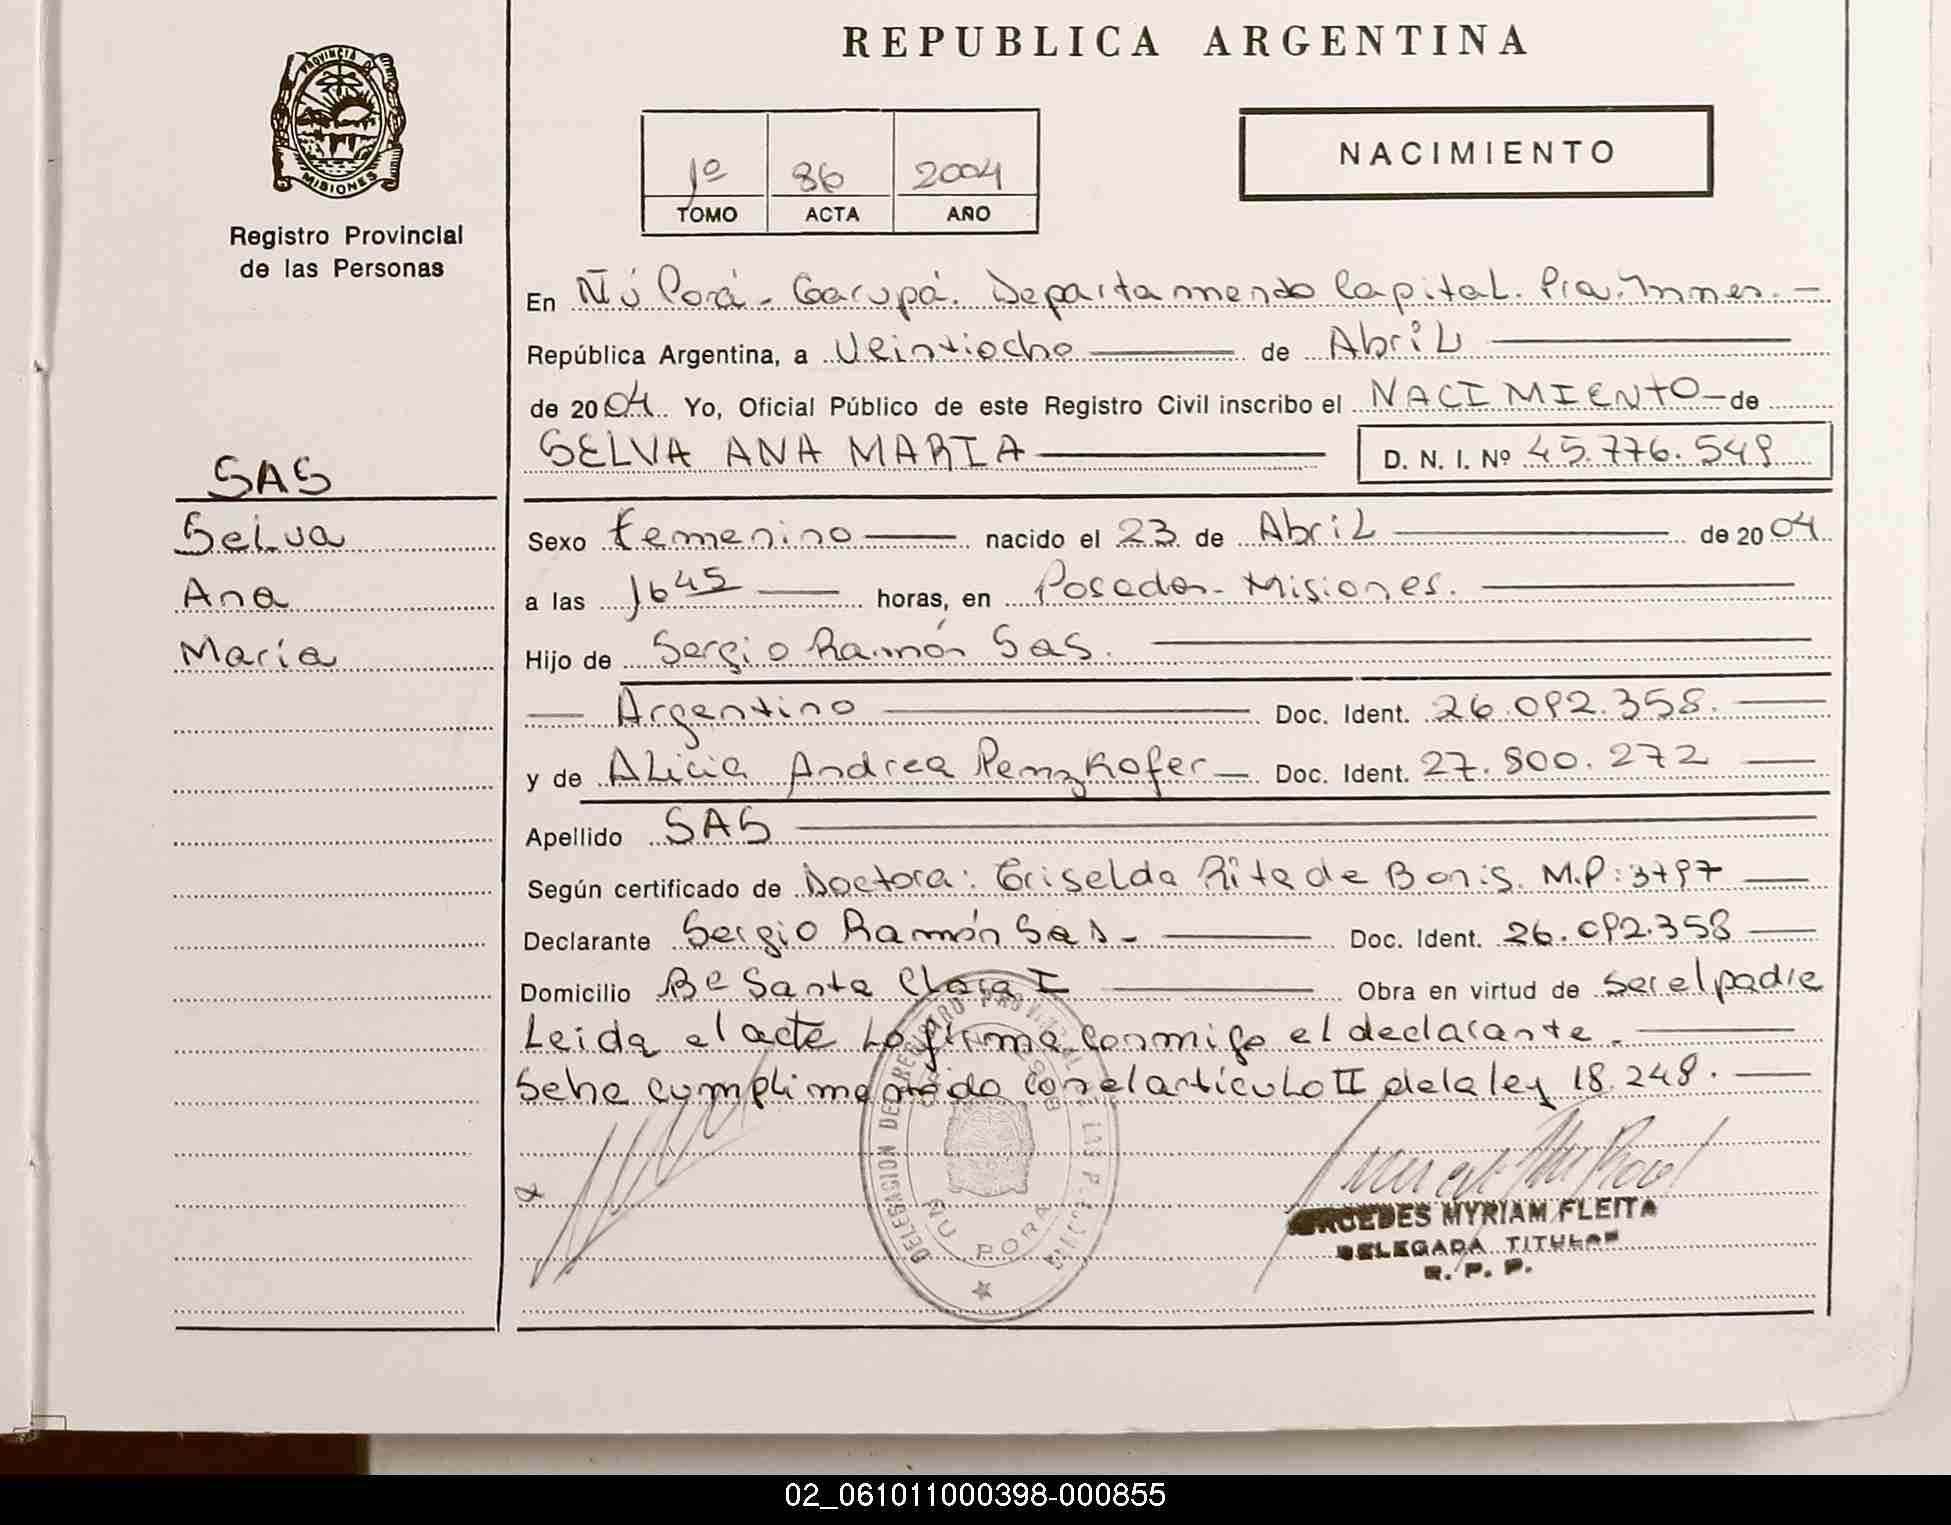 REPUBLICA ARGENTINA
PROVINCIA DE
MISIONES
Registro Provincial
de las Personas
1º 86 2004
TOMO ACTA AÑO
NACIMIENTO
En Ñú Porá - Garupá. Departamento Capital. Pia.
República Argentina, a Veintiocho de Abril
de 2004. Yo, Oficial Público de este Registro Civil inscribo el NACIMIENTO de
SELVA ANA MARIA D. N. I. Nº 45.776.549
SAS
Selva
Ana
María
Sexo femenino nacido el 23 de Abril de 2004
a las 16 45 horas, en Posadas - Misiones.
Hijo de Sergio Ramón Sas.
Argentino Doc. Ident. 26.092.358.
y de Alicia Andrea Penzkofer Doc. Ident. 27.800.272
Apellido SAS
Según certificado de Doctora: Griselda Rita de Bonis. M.P: 3797
Declarante Sergio Ramón Sas - Doc. Ident. 26.092.358
Domicilio Bº Santa Clara I Obra en virtud de ser el padre
Leida el acta lo firma conmigo el declarante.
Se ha cumplimentado con el artículo II de la ley 18.248.
DELEGACION DE REGISTRO PROVINCIAL DE LAS PERSONAS
ÑU PORA
MYRIAM FLEITA
DELEGADA TITULAR
R. P. P.
02_061011000398-000855